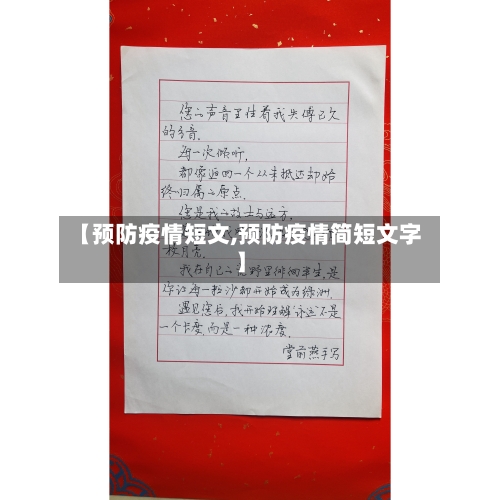 您的声音里住着我失傅已久
的乡音.
每一次倾听,
都像返回一个从未抵达却始
终归属的原点.
您是我的故土与远方.
【预防疫情短文,预防疫情简短文字
】
枚月亮.
我在自己的 野里徘徊半生,是
你让每一粒沙都开始成为绿洲.
遇见您后,我开始理解永远不是
一个长度.而是一种浓度.
堂前燕手写